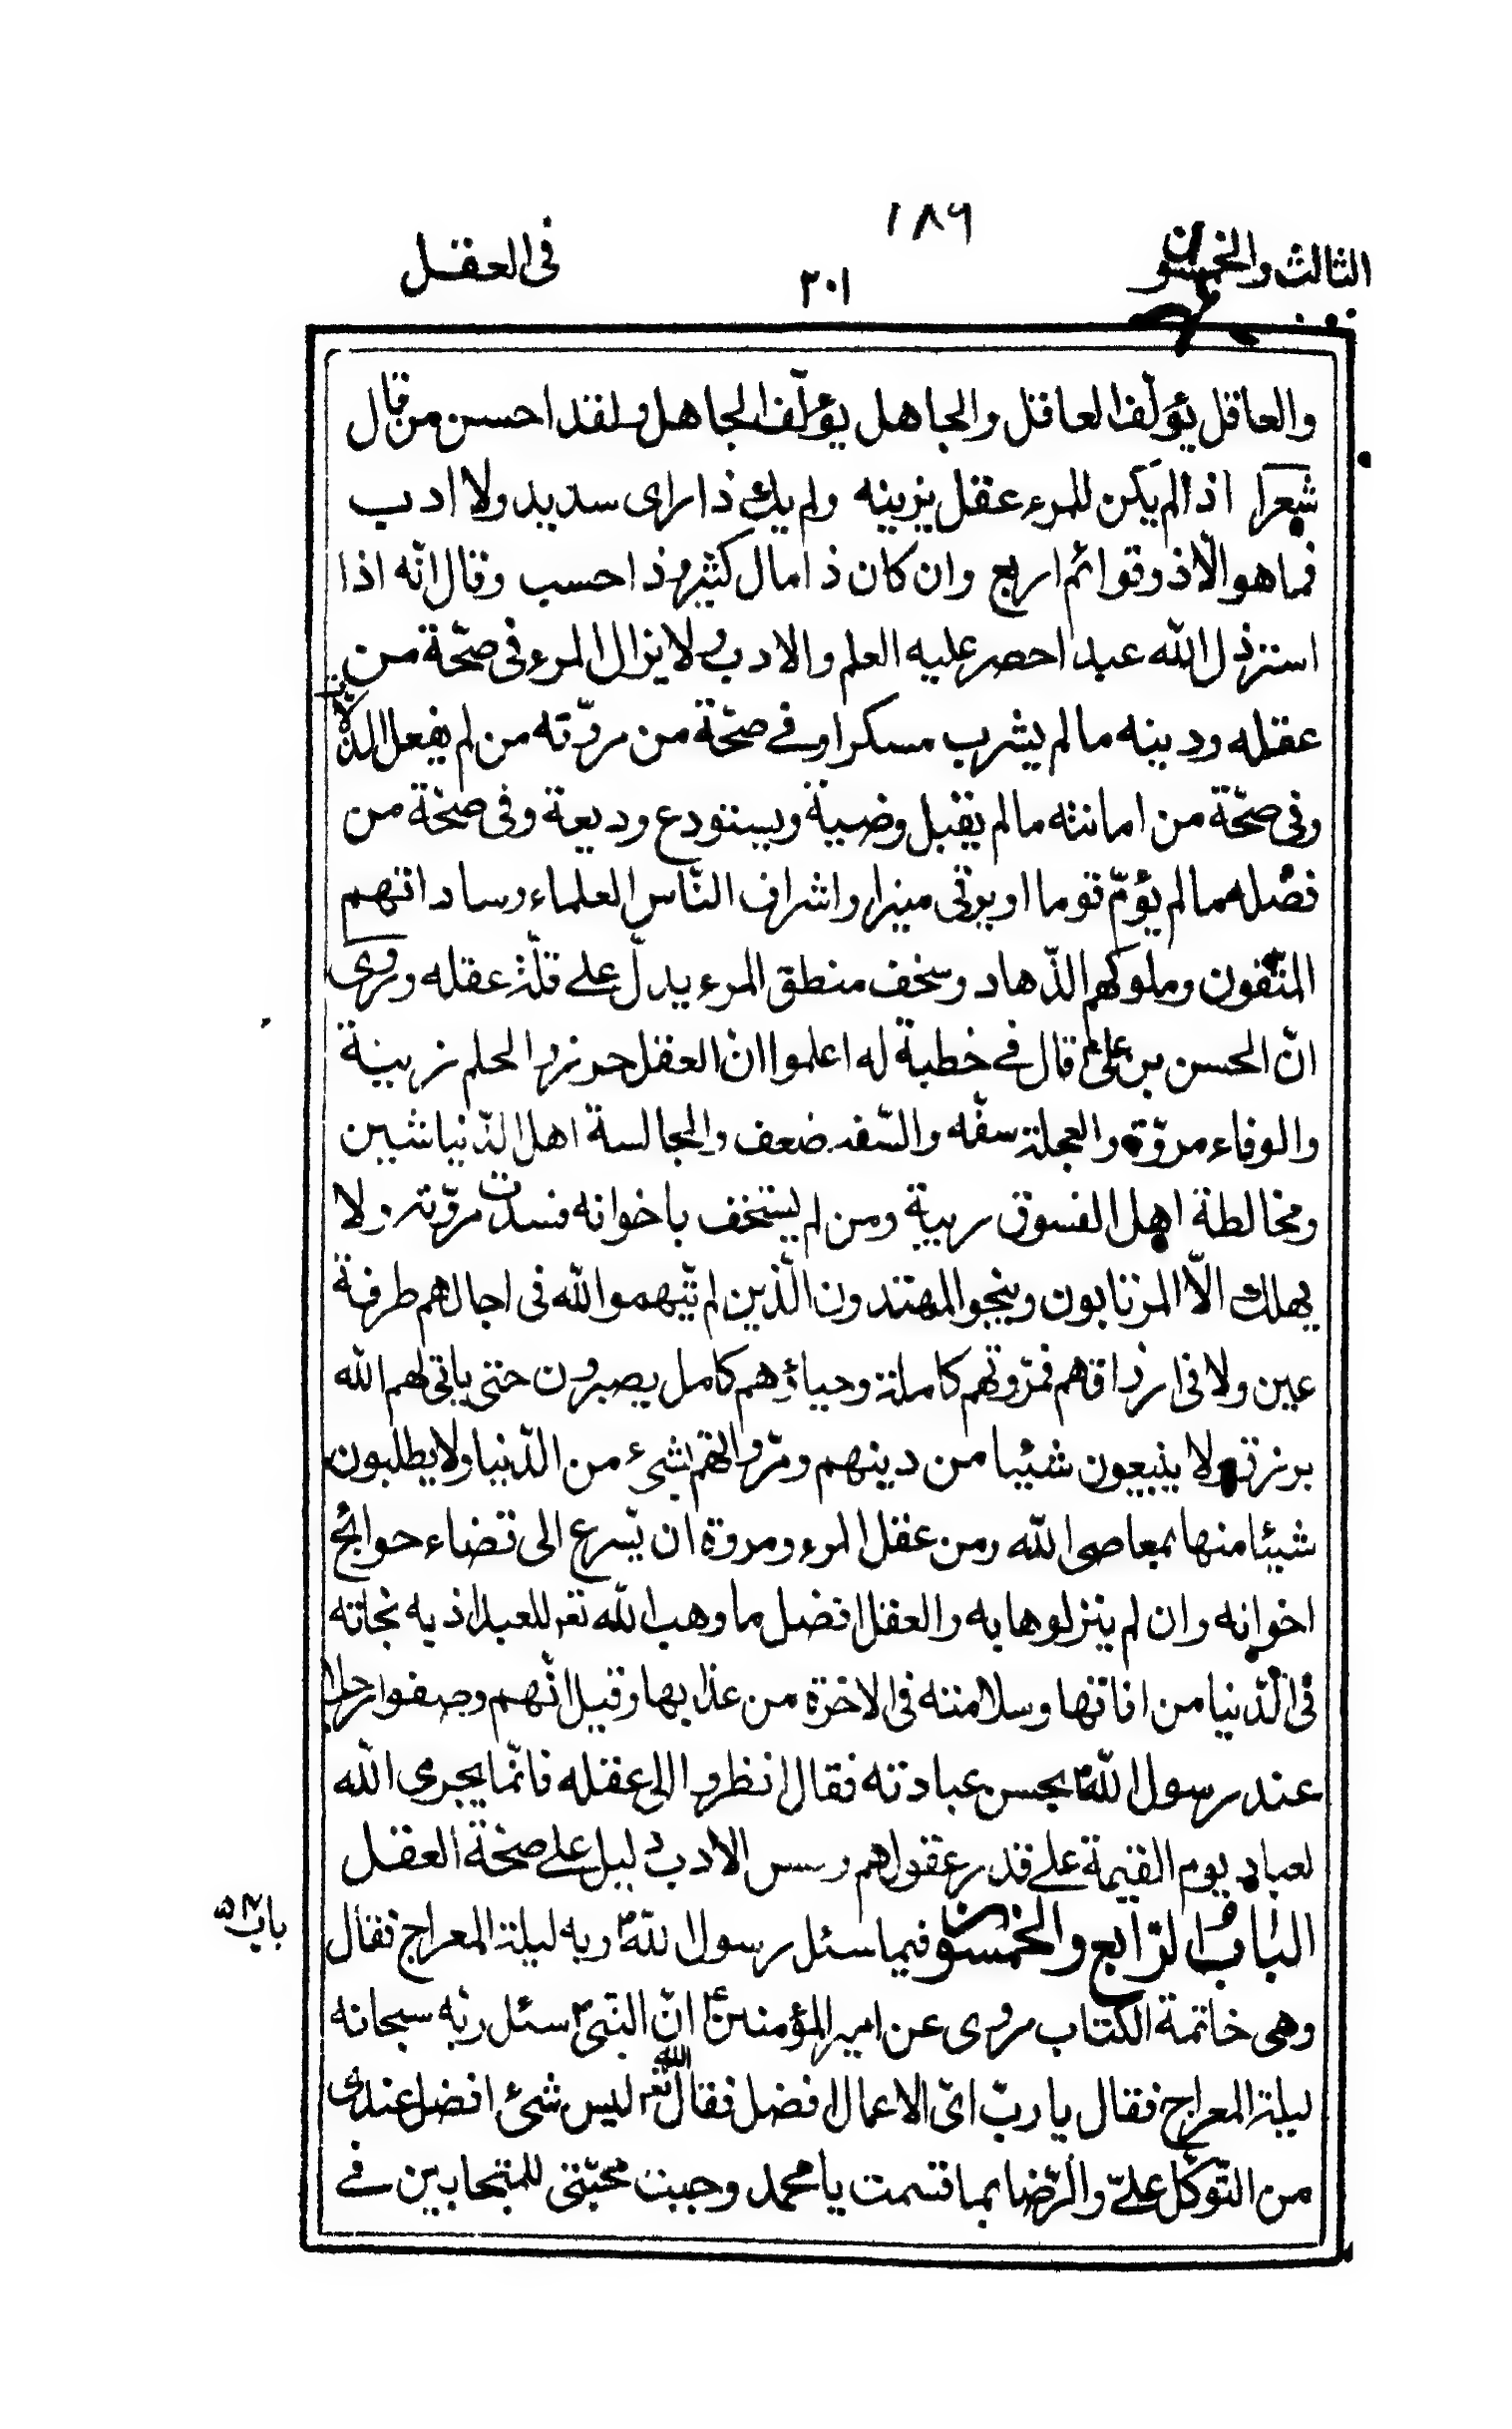 الثالث والخمسون
١٨٩
٢٠١
فى العقل
والعاقل يؤلّف العاقل والجاهل يؤلّف الجاهل ولقد احسن من قال
شعرا اذا لم يكن للمرء عقل يزينه ولم يك ذا راى سديد ولا ادب
فما هو الّا ذو قوائم اربع وان كان ذا مال كثير وذا حسب وقال انّه اذا
استرذل الله عبدا حصر عليه العلم والادب ولا يزال المرء فى صحّة من
عقله ودينه ما لم يشرب مسكرا وفے صحّة من مروّته من لم يفعل الزلّات
وفى صحّة من امانته ما لم يقبل وصية ويستودع وديعة وفى صحّة من
فضله ما لم يؤمّ قوما او يرقى منبرا واشراف النّاس العلماء وساداتهم
المتّقون وملوكهم الزّهاد وسخف منطق المرء يدلّ علے قلّة عقله وروى
انّ الحسن بن علىّ قال فے خطبة له اعلموا انّ العقل حرز والحلم زينة
والوفاء مروّة والعجلة سفه والسّفه ضعف والمجالسة اهل الدّنيا شين
ومخالطة اهل الفسوق ريبة ومن لم يستخف باخوانه فسدت مروّته ولا
يهلك الّا المرتابون وينجو المهتدون الّذين لم يتّهموا الله فى اجالهم طرفة
عين ولا فى ارزاقهم فمروّتهم كاملة وحياؤهم كامل يصبرون حتى ياتى لهم الله
برزقه ولا يبيعون شيئا من دينهم ومروّاتهم بشىء من الدّنيا ولا يطلبون
شيئا منها بمعاصى الله ومن عقل المرء ومروة ان يسرع الى قضاء حوائج
اخوانه وان لم ينزلوها به والعقل افضل ما وهب الله تعه للعبد اذ به نجاته
فى الدّنيا من افاتها وسلامته فى الاخرة من عذابها وقيل انّهم وصفوا رجلا
عند رسول الله بحسن عبادته فقال انظروا الى عقله فانّما يجرى الله
لعباد يوم القيمة علے قدر عقولهم وحسن الادب دليل علے صحّة العقل
الباب الرّابع والخمسون فيما سئل رسول الله ربه ليلة المعراج فقال
باب ٥٤
وهى خاتمة الكتاب روى عن امير المؤمنين انّ النّبىّ سئل ربّه سبحانه
ليلة المعراج فقال يا ربّ اىّ الاعمال افضل فقال الله تعه ليس شىء افضل عندى
من التّوكّل علىّ والرّضا بما قسمت يا محمد وجبت محبّتى للمتحابين فے